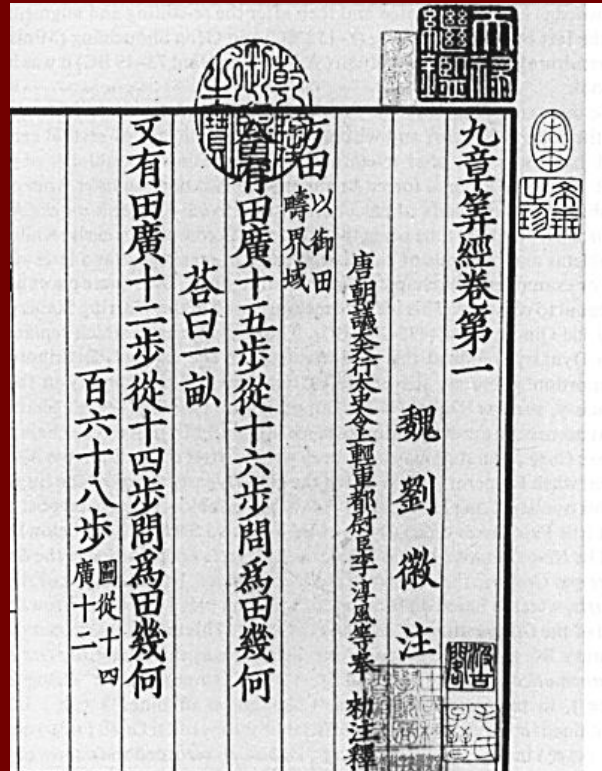 天祿繼鑑
宋本
希世之珍
九章筭經卷第一
魏劉徽注
唐朝議大夫行太史令上輕車都尉臣李淳風等奉 勑注釋
乾隆御覽之寶
方田以御田疇界域
今有田廣十五步從十六步問爲田幾何
荅曰一畝
又有田廣十二步從十四步問爲田幾何
百六十八步圖從十四廣十二
汲古閣